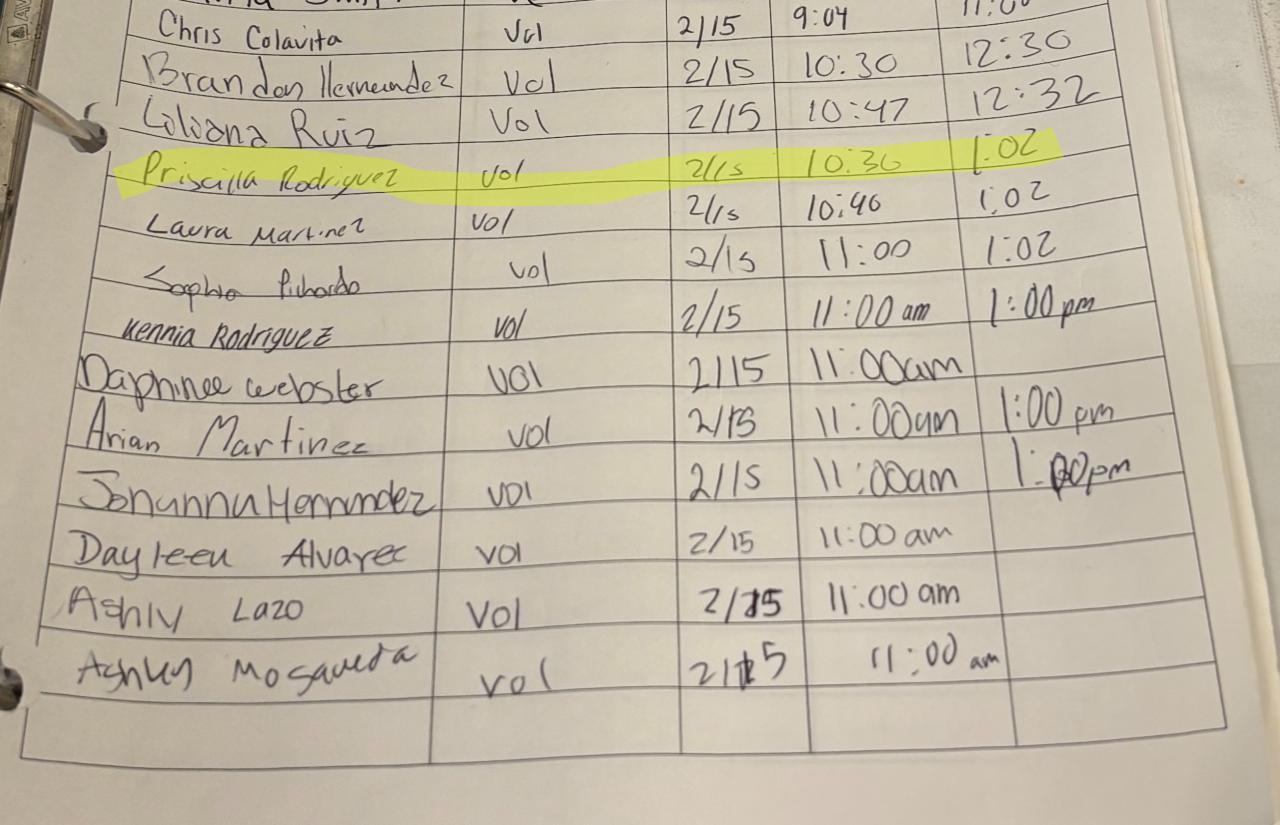 Chris Colavita Vol 2/15 9:04 11:00
Brandon Hernendez Vol 2/15 10:30 12:30
Ruiz Vol 2/15 10:47 12:32
Priscilla Rodriguez Vol 2/15 10:30 1:02
Laura Martinez Vol 2/15 10:40 1:02
Sophia Pichardo Vol 2/15 11:00 1:02
Kennia Rodriguez Vol 2/15 11:00 am 1:00 pm
Daphinee webster VOl 2/15 11:00am
Arian Martinez vol 2/15 11:00am 1:00 pm
Johanna Hernandez VOl 2/15 11:00am 1:00pm
Dayleen Alvarec vol 2/15 11:00 am
Ashly Lazo Vol 2/15 11:00 am
Ashley Mosqueda vol 2/15 11:00 am